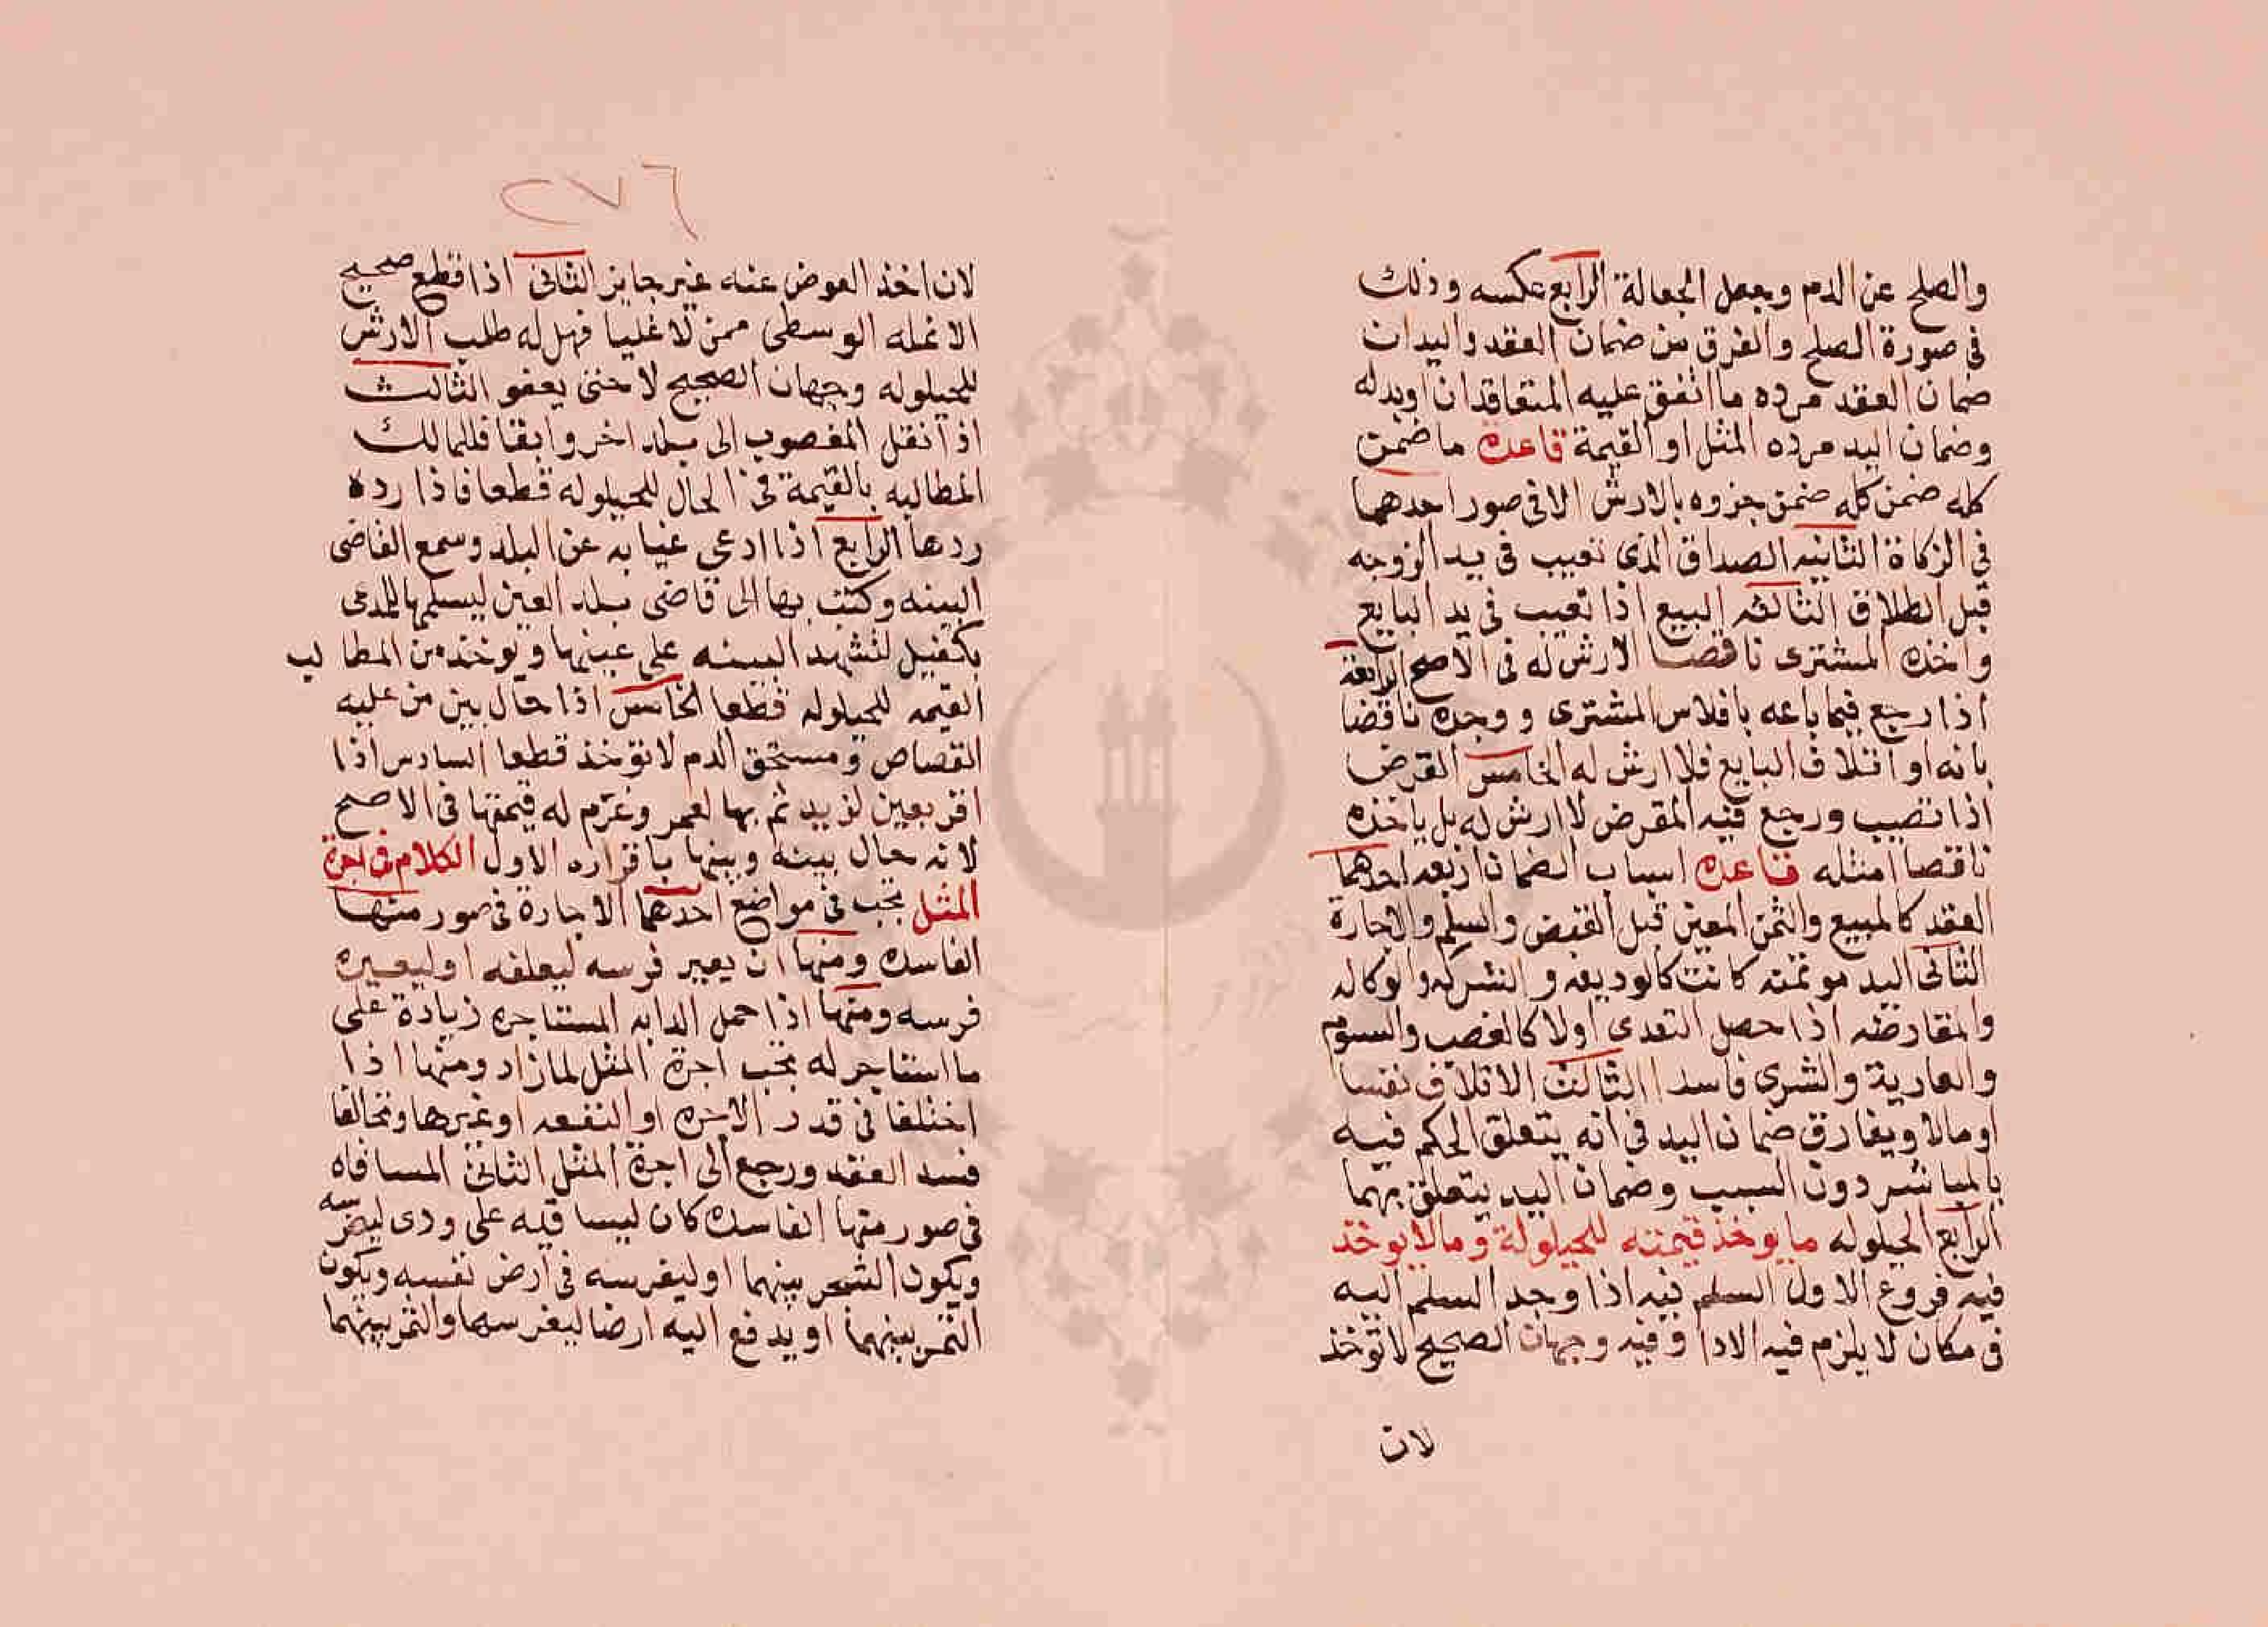 والصلح عن الدم وجعل الجعالة الرابع عكسه وذلك
في صورة الصلح والفرق من ضمان العقد واليد ان
ضمان العقد مرده ما اتفق عليه المتعاقدان او بدله
وضمان اليد مرده المثل او القيمة قاعدة ما ضمن
كله ضمن كله ضمن جزوه بالارش الا في صور احدهما
في الزكاة الثانيه الصداق الذى تعيب في يد الزوجه
قبل الطلاق الثالثه البيع اذا تعيب في يد البايع
واخذه المشترى ناقصا لا ارش له في الاصح الرابعة
اذا رجع فيما باعه بافلاس المشترى ووجده ناقصا
بانه او اتلاف البايع فلا ارش له الخامس القرض
اذا تعيب ورجع فيه المقرض لا ارش له بل ياخذه
ناقصا امثله قاعدة اسباب الضمان اربعه احدهما
العقد كالمبيع والثمن المعين قبل القبض والسلم والاجارة
الثانى اليد موتمنه كانت كالوديعه والشركه والوكاله
والمقارضه اذا حصل التعدى او لا كالغصب والسوم
والعارية والشرى فاسدا الثالث الاتلاف نفسا
او مالا ويفارق ضمان اليد في انه يتعلق الحكم فيه
بالمباشر دون السبب وضمان اليد يتعلق بهما
الرابع الحيلوله ما يوخذ قيمته للحيلولة وما لا يوخذ
فيه فروع الاول السلم فيه اذا وجد السلم اليه
في مكان لا يلزم فيه الادا وفيه وجهان الصحيح لا توخذ
لان
٢٧٦
لان اخذ العوض عنه غير جايز الثانى اذا قطع صحيح
الانمله الوسطى ممن لا عليا فهل له طلب الارش
للحيلوله وجهان الصحيح لا حتى يعفو الثالث
اذا نقل المغصوب الى بلد اخر وابقا فللمالك
المطالبه بالقيمة في الحال للحيلوله قطعا فاذا رده
ردها الرابع اذا ادعى عينا به عن البلد وسمع القاضى
البينه وكتب بها الى قاضى بلد العين ليسلمها للمدعى
بكفيل لتشهد البينه على عينها ويوخذ من المطالب
القيمه للحيلوله قطعا الخامس اذا حال بين من عليه
القصاص ومستحق الدم لا توخذ قطعا السادس اذا
اقر بعين لزيد ثم بها لعمر وغرم له قيمتها في الاصح
لانه حال بينه وبينها باقراره الاول الكلام في اجرة
المثل تجب في مواضع احدهما الاجارة في صور منها
الفاسده ومنها ان يعير فرسه ليعلفه او ليعيره
فرسه ومنها اذا حمل الدابه المستاجره زيادة على
ما استاجر له تجب اجرة المثل لما زاد ومنها اذا
اختلفا في قدر الاجره او النفعه او غيرها وتحالفا
فسد العقد ورجع الى اجرة المثل الثانى المساقاه
في صور منها الفاسده كان ليساقيه على ودى ليغرسه
ويكون الشجر بينهما او ليغرسه في ارض نفسه ويكون
الثمر بينهما او يدفع اليه ارضا ليغرسها والثمر بينهما